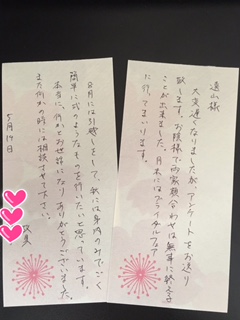 遠山様
大変遅くなりましたが、アンケートをお送り
致します。お陰様で両家顔合わせは無事に終える
ことが出来ました。月末にはブライダルフェア
に行ってまいります。
8月には引越しをして、秋には身内のみでごく
簡単に式のようなものを行いたいと思っています。
本当に、何かとお世話になりありがとうございました。
また何かの時には相談させて下さい。
5月19日